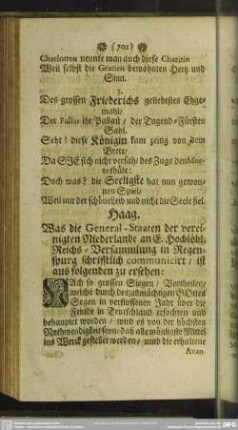 (702)
Charlotten nennte man auch diese Charitin
Weil selbst die Gratien bewohnten Hertz und
Sinn.
3.
Des grossen Friederichs geliebtestes Ehge-
mahl/
Der Pallas ihr Pallast/ der Tugend-Fürsten
Sahl.
Seht! diese Königin kam zeitig von dem
Brete/
Da SIE sich nicht versah/ des Zugs den
thäte:
Doch was? die Seeligste hat nun gewon-
nen Spiel/
Weil nur der schöne Leib und nicht die Seele fiel.
Haag.
Was die General-Staaten der verei-
nigten Niederlande an E. Hochlöbl.
Reichs-Versammlung in Regen-
spurg schrifftlich communicirt/ ist
aus folgenden zu ersehen:
NAch so grossen Siegen/ Vortheilen/
welche durch des allmächtigen GOttes
Segen in verflossenen Jahr über die
Feinde in Teutschland erfochten und
behauptet worden/ wird es von der höchsten
Nothwendigkeit seyn/ daß alle mögliche Mittel
ins Werck gestellet werden/ umb die erhaltene
Avan-